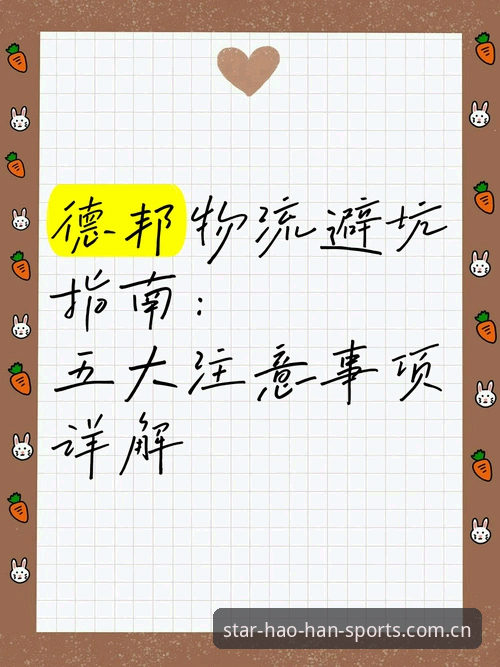 德邦物流避坑
指南：
五大注意事项
详解
star-hao-han-sports.com.cn